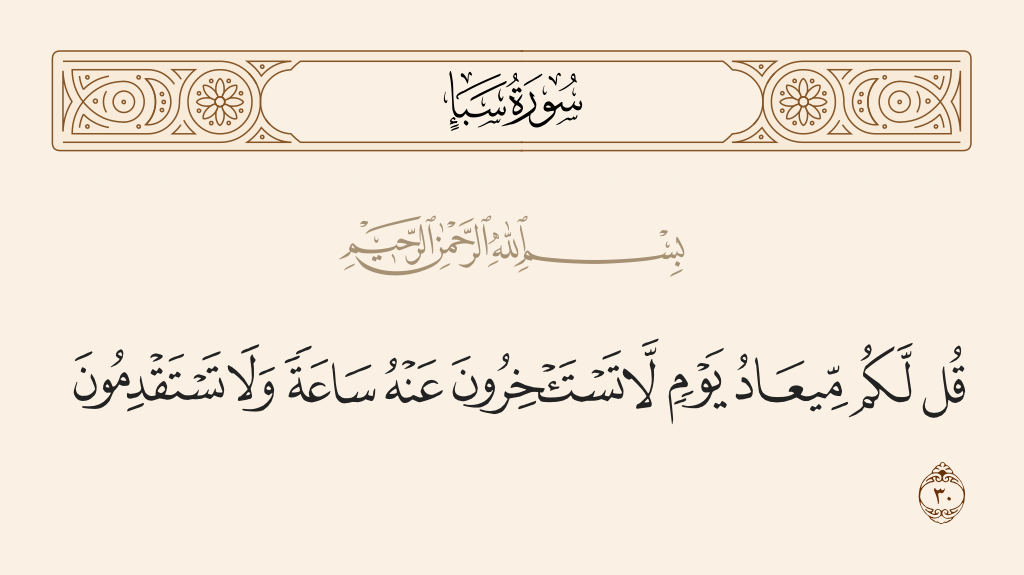 سُورَةُ سَبَإٍ
بِسْمِ ٱللَّهِ ٱلرَّحْمَٰنِ ٱلرَّحِيمِ
قُل لَّكُم مِّيعَادُ يَوْمٍ لَّا تَسْتَـْٔخِرُونَ عَنْهُ سَاعَةً وَلَا تَسْتَقْدِمُونَ
٣٠